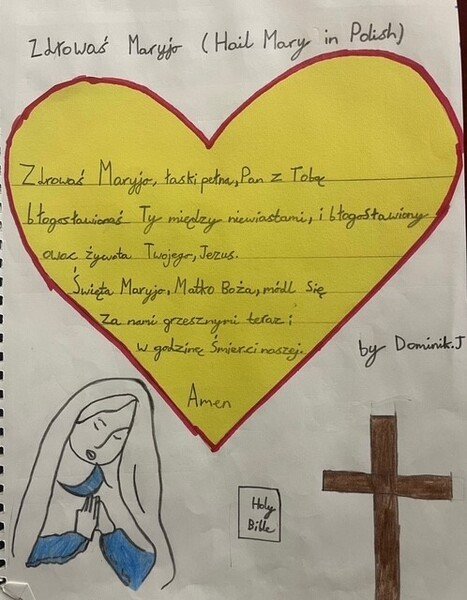 Zdrowaś Maryjo (Hail Mary in Polish)
Zdrowaś Maryjo, łaski pełna, Pan z Tobą
błogosławionaś Ty między niewiastami, i błogosławiony
owoc żywota Twojego, Jezus.
Święta Maryjo, Matko Boża, módl się
za nami grzesznymi teraz i
w godzinę śmierci naszej.
Amen
by Dominik.J
Holy
Bible